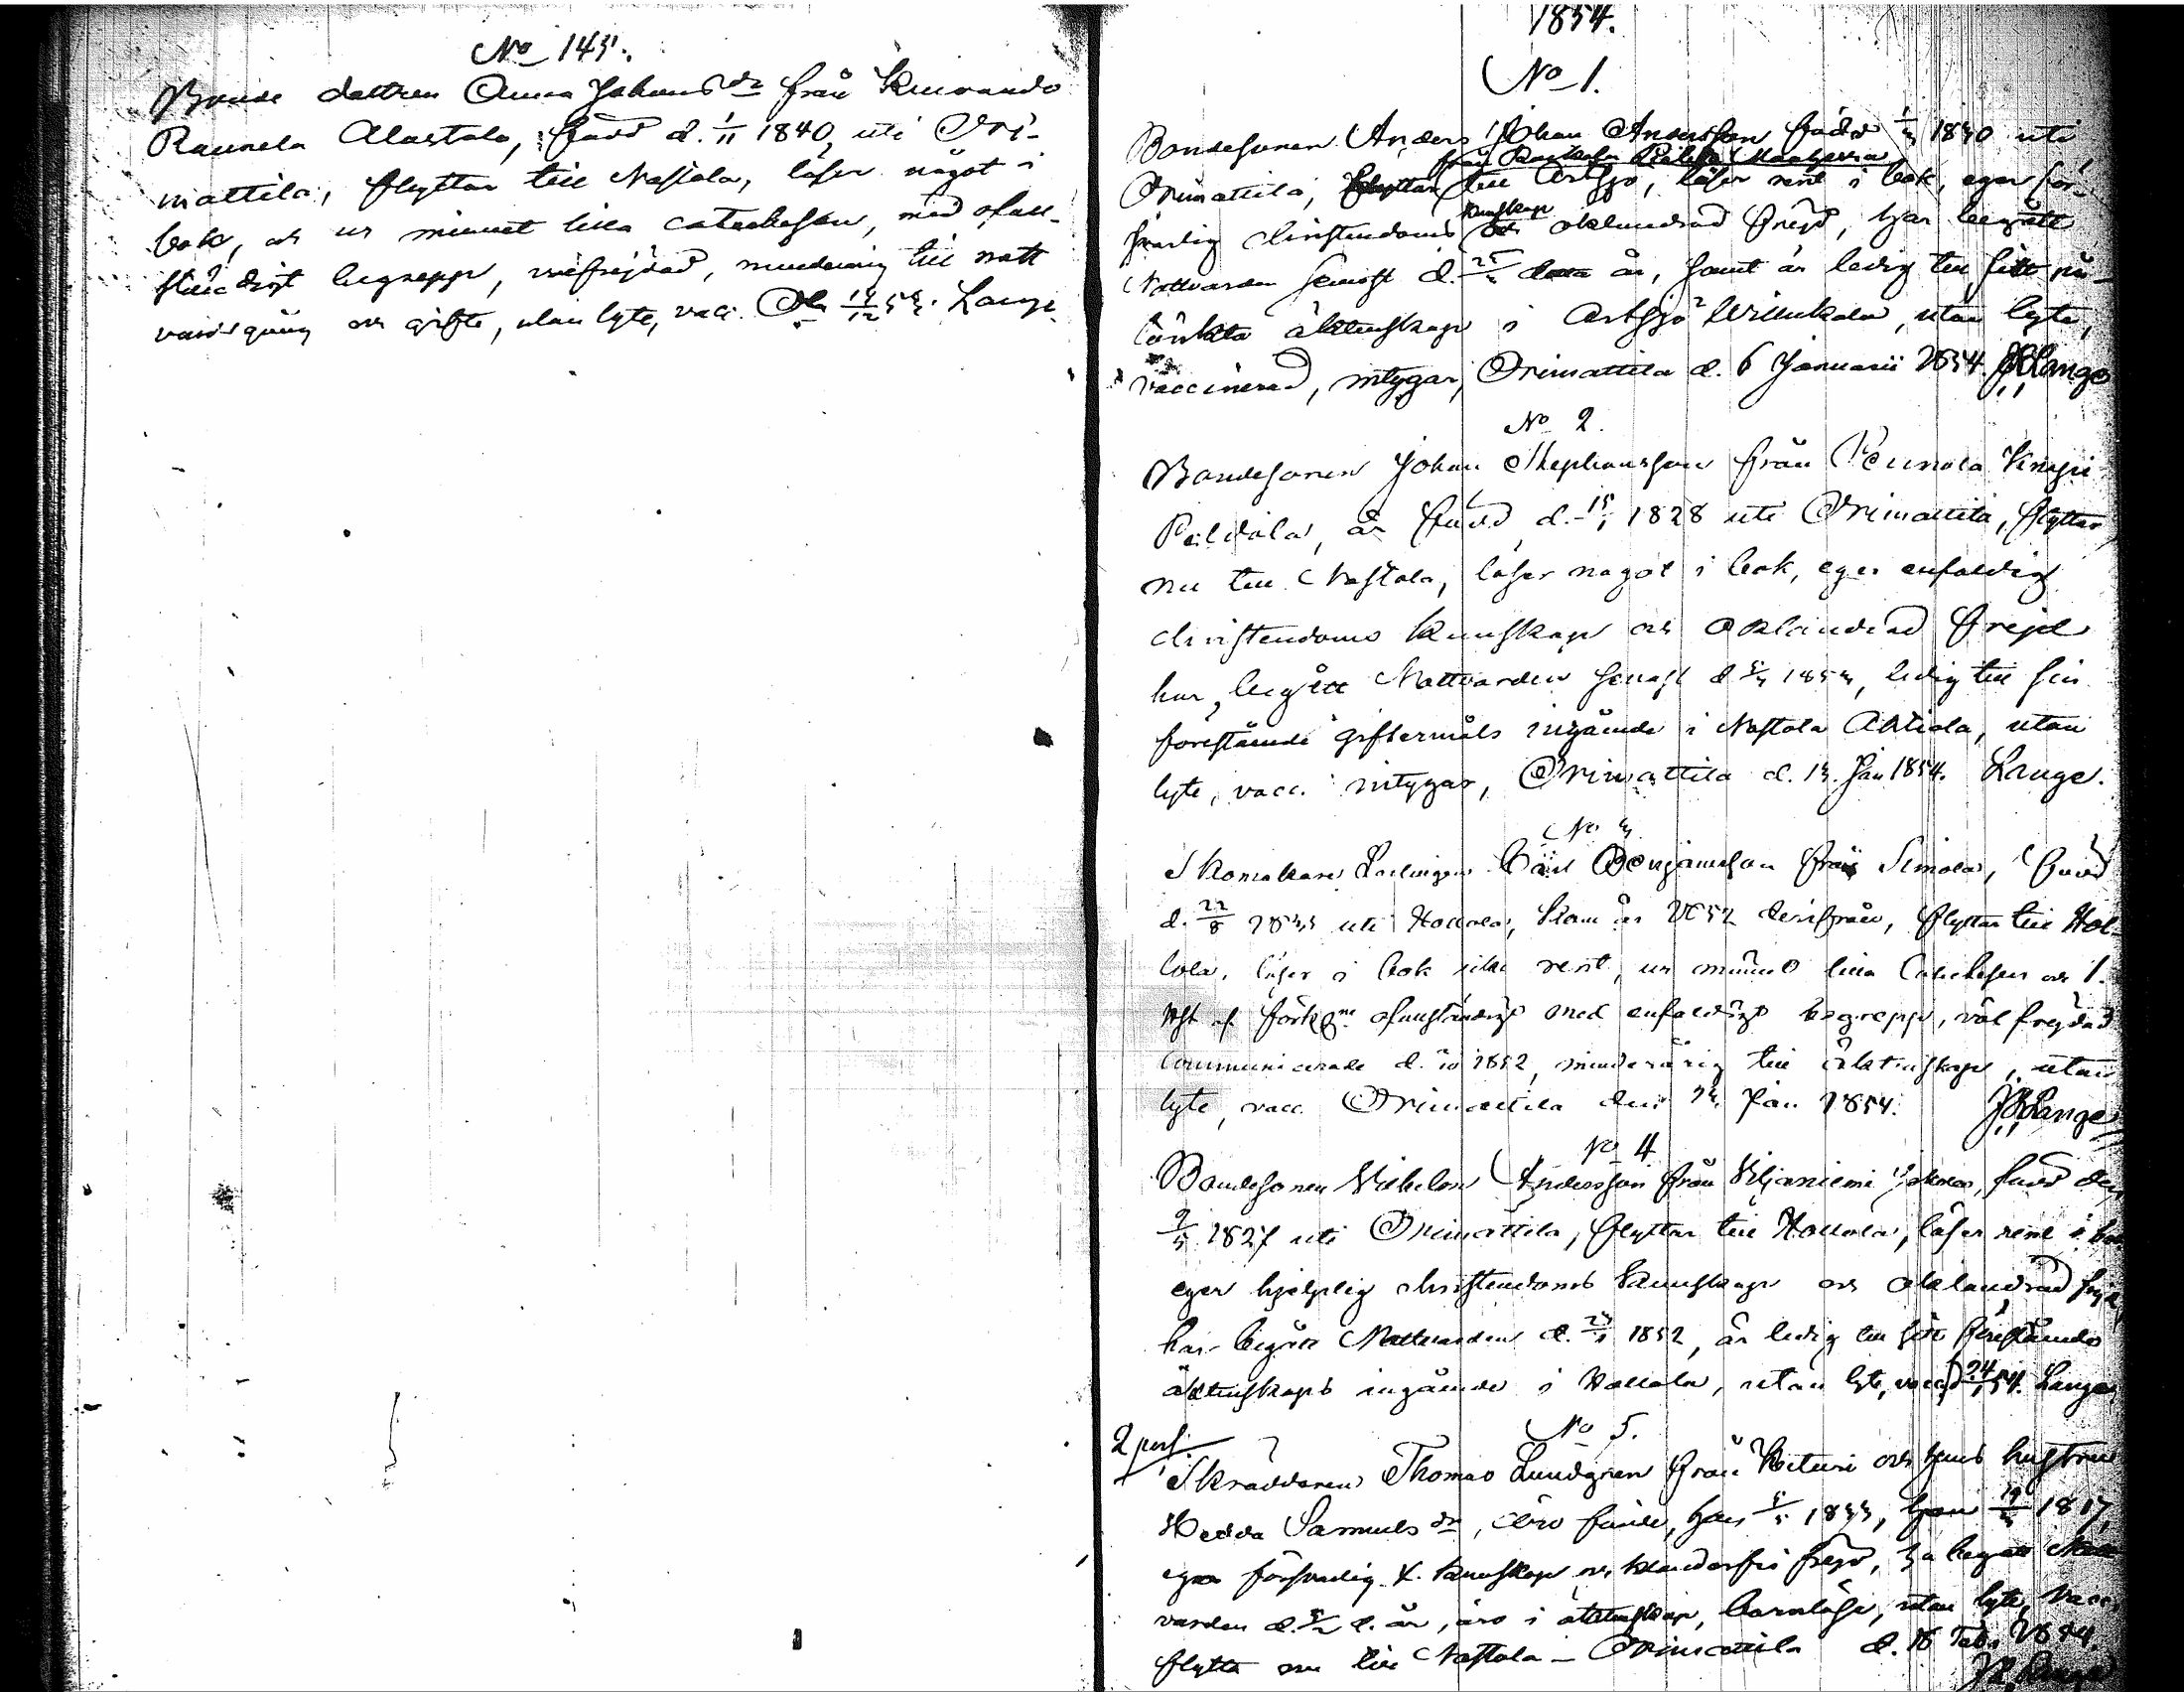 No 145.
Bonde dottren Anna Johansdr från Kuivando
Raunela Alastalo, född d. 1/11 1840, uti Ori-
mattila, flyttar till Nastola, läser något i
bok, och ur minnet lilla catechesen, med ofull-
ständigt begrepp, välfrejdad, minderårig till natt
vardsgång och gifte, utan lyte, vacc. Ola 14/12 53. Lange.
1854.
No 1.
Bondesonen Anders Johan Andersson född 1830 uti
från
Orimattila, flyttar till Artsjö, läser rent i bok, eger för-
kunskap
svarlig christendoms och oklandrad frejd, har begått
Nattvarden senast d. år, samt är ledig till sitt på-
tänkta äktenskap i Artsjö Willikala, utan lyte,
vaccinerad, intygar, Orimattila d. 6 Januarii 1854. JRLange
No 2.
Bondesonen Johan Stephansson från Pennola Knapi
är född d. 15/1 1828 uti Orimattila, flyttar
nu till Nastola, läser något i bok, eger enfaldig
christendoms kunskap och oklandrad frejd
har begått Nattvarden senast d. 1853, ledig till sin
förestående giftermåls ingående i Nastola, utan
lyte, vacc. intygar, Orimattila d. 13. Jan 1854. Lange.
No 3
Skomakare Lärlingen Carl Benjamsson från Simola, född
d. 22/8 1835 uti Hollola, kom år 1852 derifrån, flyttar till Hol-
lola, läser i bok icke rent, ur minnet lilla Catechesen och 1.
ofullständigt med enfaldigt begrepp, väl frejdad
communicerade d. 1852, minderårig till äktenskap, utan
lyte, vacc. Orimattila den Jan 1854. JRLange
No 4
Bondesonen Wilhelm Andersson från Viljaniemi Jakola, född den
9/5 1827 uti Orimattila, flyttar till Hollola, läser rent i bok
eger hjelplig christendoms kunskap och oklandrad frejd
har begått Nattvarden d. 1852, är ledig till sitt förestående
äktenskaps ingående i Hollola, utan lyte, vacc. 24/1 54. Lange
No 5.
2 pers.
Skräddaren Thomas Lundgren från Keituri och hans hustru
Hedda Samuelsdr, äro födde, han 1833, hon 1817,
ega försvarlig k. kunskap och klanderfri frejd, ha begått Natt
varden d. d. år, äro i äktenskap, barnlöse, utan lyte, vacc.
flytta nu till Nastola — Orimattila d. 16 Feb. 1854.
JRLange